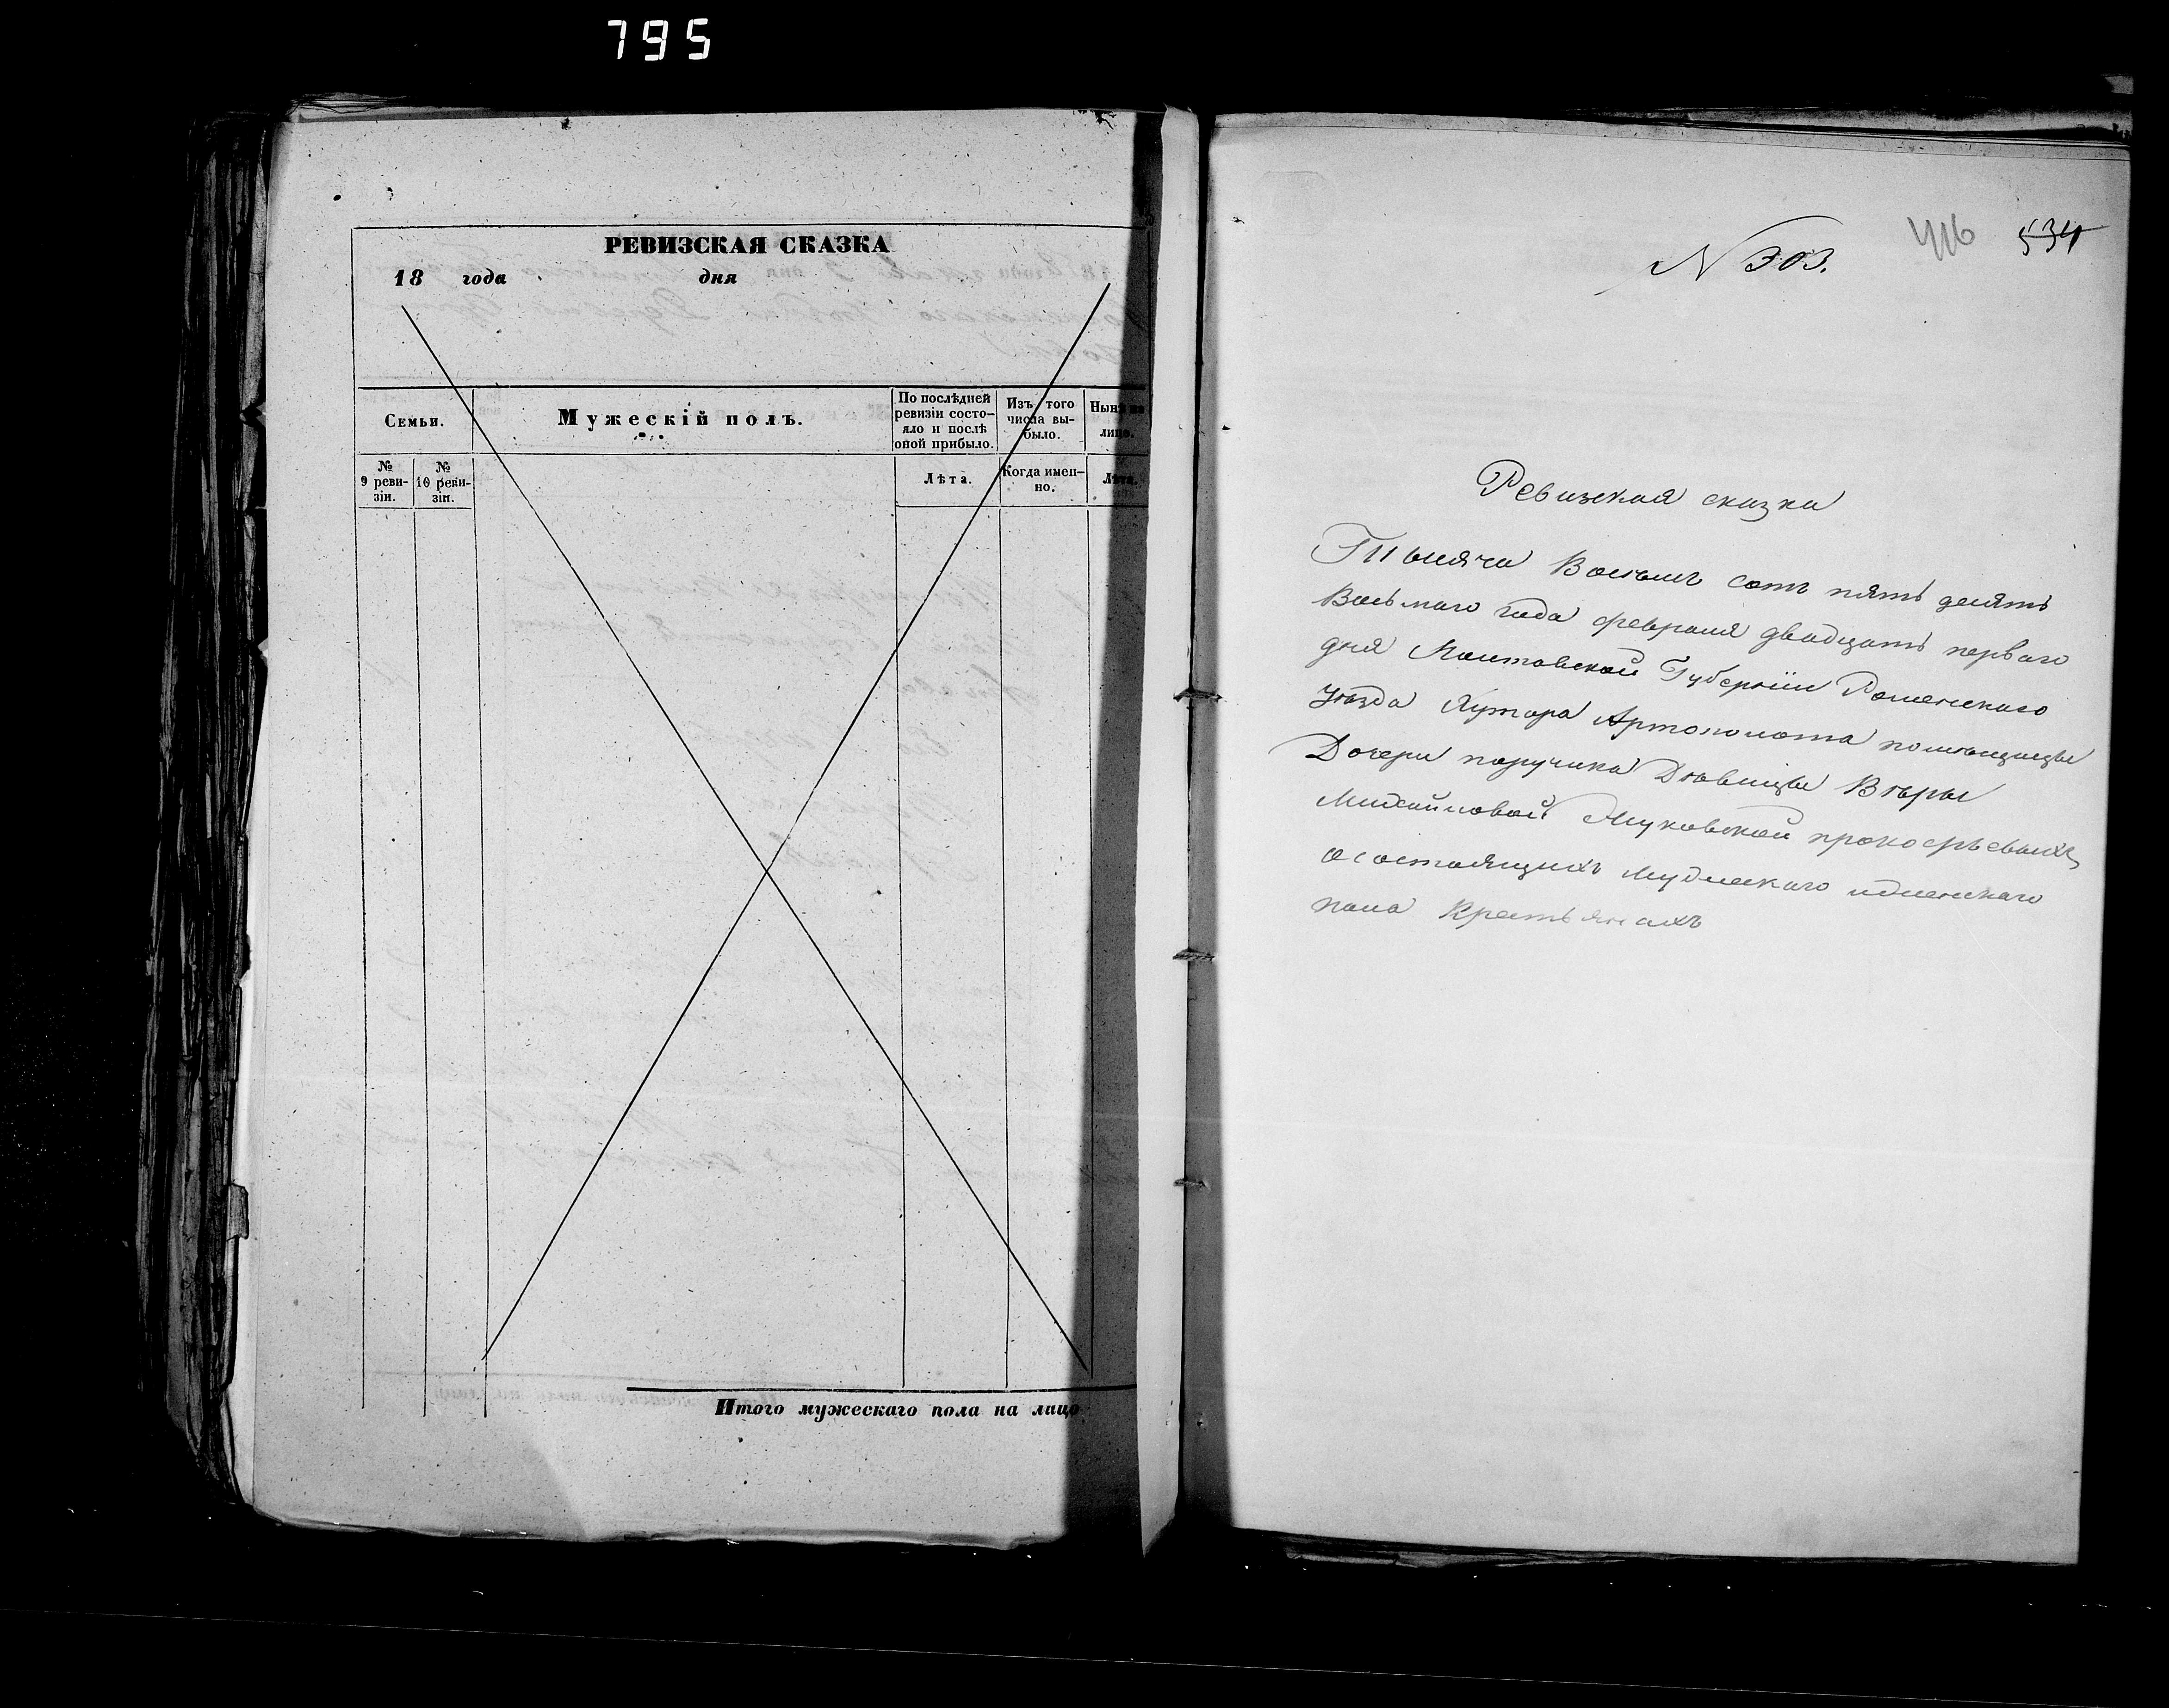 795
РЕВИЗСКАЯ СКАЗКА
18 года дня
Семьи.
Мужескій полъ.
По послѣдней ревизіи состо-
яло и послѣ
оной прибыло.
Изъ того
числа вы-
было.
Нынѣ на
лицо.
№
9 реви-
зіи.
№
10 реви-
зіи.
Лѣта.
Когда имен-
но.
Лѣта.
Итого мужескаго пола на лицо
N 303.
416
534
Ревизская сказка
Тысяча Восемь сотъ пять десять
Восьмаго года февраля двадцать перваго
дня Полтавской Губерніи Роменскаго
Уѣзда Хутора Артополота помѣщицы
Дочери поручика Дѣвицы Вѣры
Михайловой
осостоящихъ мужескаго иженскаго
пола Крестьянахъ